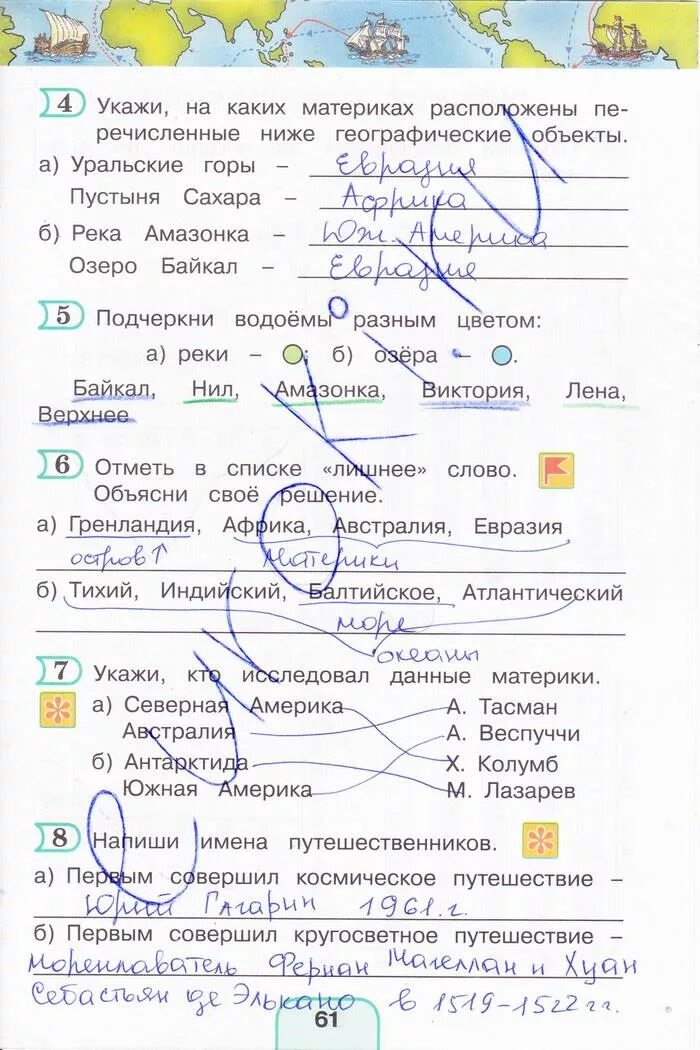 4 Укажи, на каких материках расположены пе-
речисленные ниже географические объекты.
а) Уральские горы – Евразия
Пустыня Сахара – Африка
б) Река Амазонка – Юж. Америка
Озеро Байкал – Евразия
5 Подчеркни водоёмы разным цветом:
а) реки – ; б) озёра – .
Байкал, Нил, Амазонка, Виктория, Лена,
Верхнее
6 Отметь в списке «лишнее» слово.
Объясни своё решение.
а) Гренландия, Африка, Австралия, Евразия
остров↑ материки
б) Тихий, Индийский, Балтийское, Атлантический
море
океаны
7 Укажи, кто исследовал данные материки.
а) Северная Америка А. Тасман
Австралия А. Веспуччи
б) Антарктида Х. Колумб
Южная Америка М. Лазарев
8 Напиши имена путешественников.
а) Первым совершил космическое путешествие –
Юрий Гагарин 1961 г.
б) Первым совершил кругосветное путешествие –
мореплаватель Фернан Магеллан и Хуан
Себастьян де Элькано в 1519-1522 гг.
61